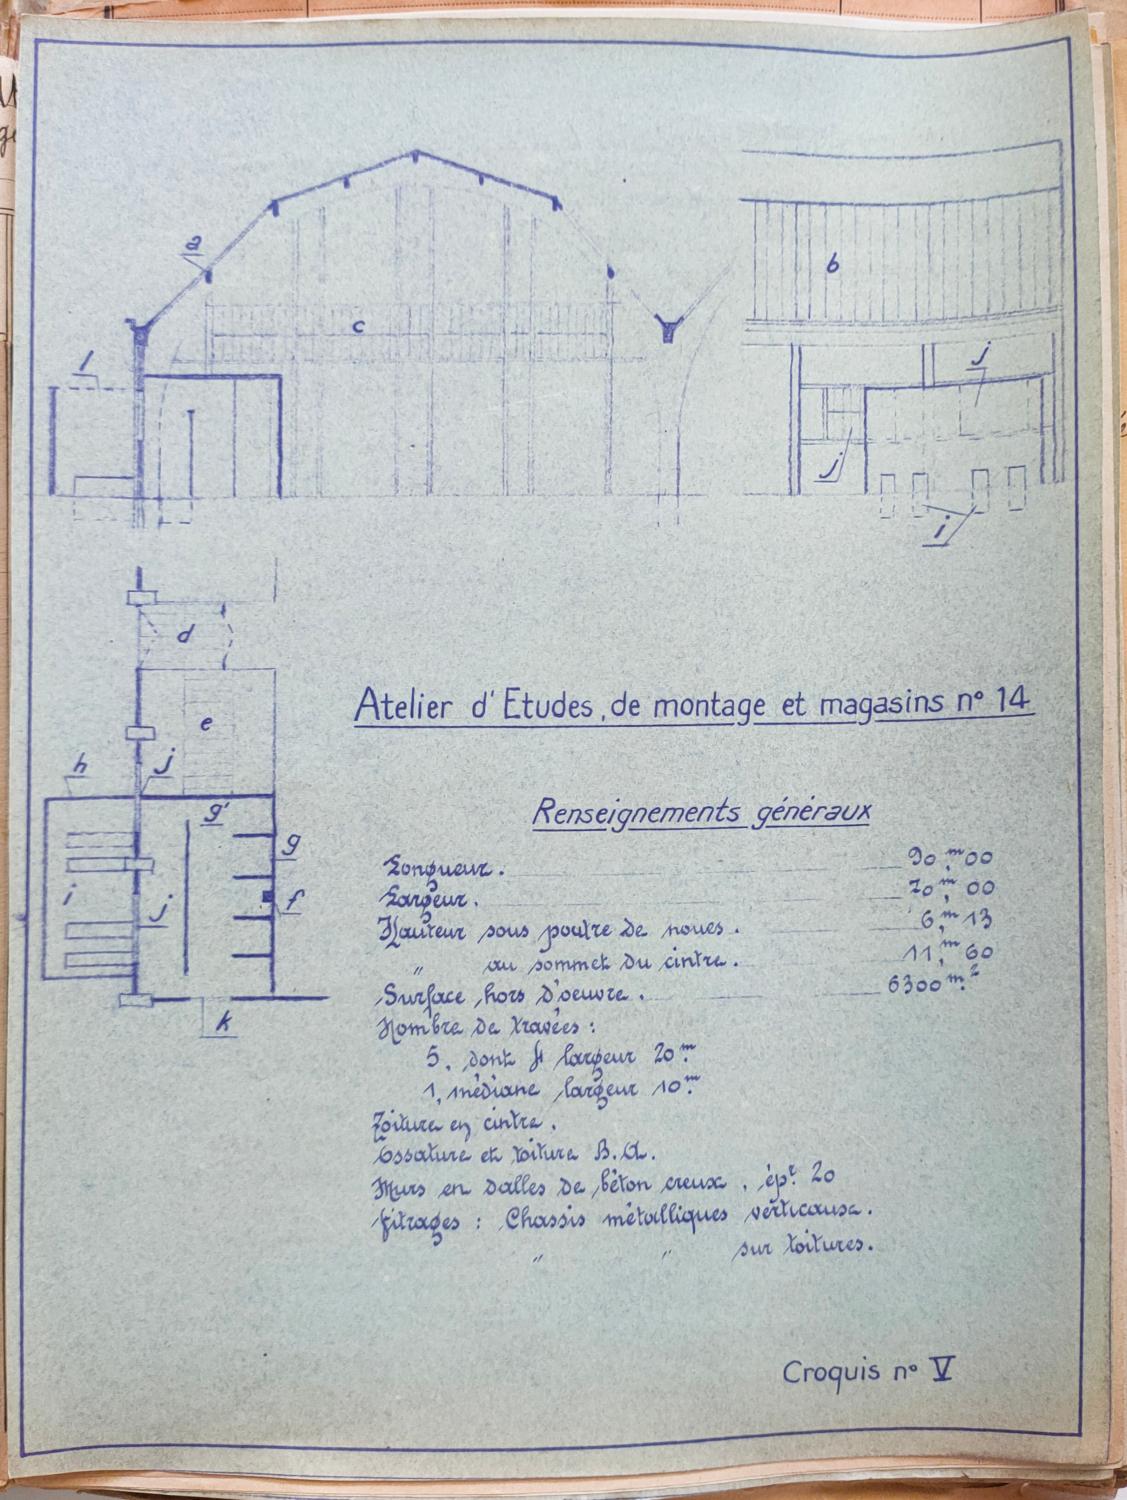 a
b
c
l
j
j
i
d
e
h
j
g'
g
i
j
f
k
Atelier d'Etudes, de montage et magasins n° 14
Renseignements généraux
Longueur. 90,m00
Largeur. 70,m00
Hauteur sous poutre de noues. 6,m13
" au sommet du cintre. 11,m60
Surface hors d'oeuvre. 6300 m.2
Nombre de travées :
5, dont 4 largeur 20 m.
1, médiane largeur 10 m.
Toiture en cintre.
Ossature et toiture B.A.
Murs en dalles de béton creux, épr. 20
Vitrages : Chassis métalliques verticaux.
" " sur toitures.
Croquis n° V